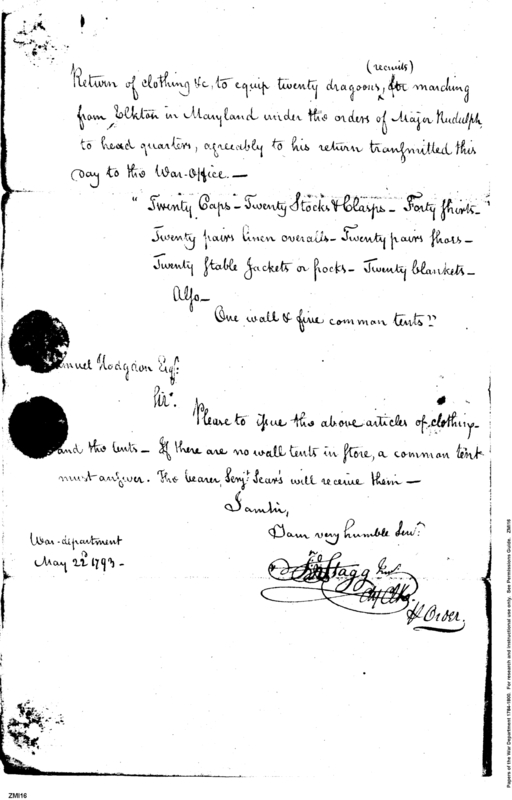 (recruits)
Return of clothing &c, to equip twenty dragoons, for marching
from Elkton in Maryland under the orders of Major Rudulph
to head quarters, agreeably to his return transmitted this
day to the War-Office. —
"Twenty Caps - Twenty Stocks & Clasps - Forty Shirts -
Twenty pairs linen overalls - Twenty pairs shoes -
Twenty Stable Jackets or frocks - Twenty blankets -
Also -
One wall & five common tents"
Samuel Hodgdon Esqr.
Sir.
Please to issue the above articles of clothing -
and the tents - If there are no wall tents in store, a common tent
must answer. The bearer Serjt. Sears will receive them -
I am Sir,
I am very humble Servt.
War-department
May 22d 1793 -
Jno Stagg Junr.
Chf Clk.
Order.
ZMI16
Papers of the War Department 1784-1800. For research and instructional use only. See Permissions Guide. ZMI16